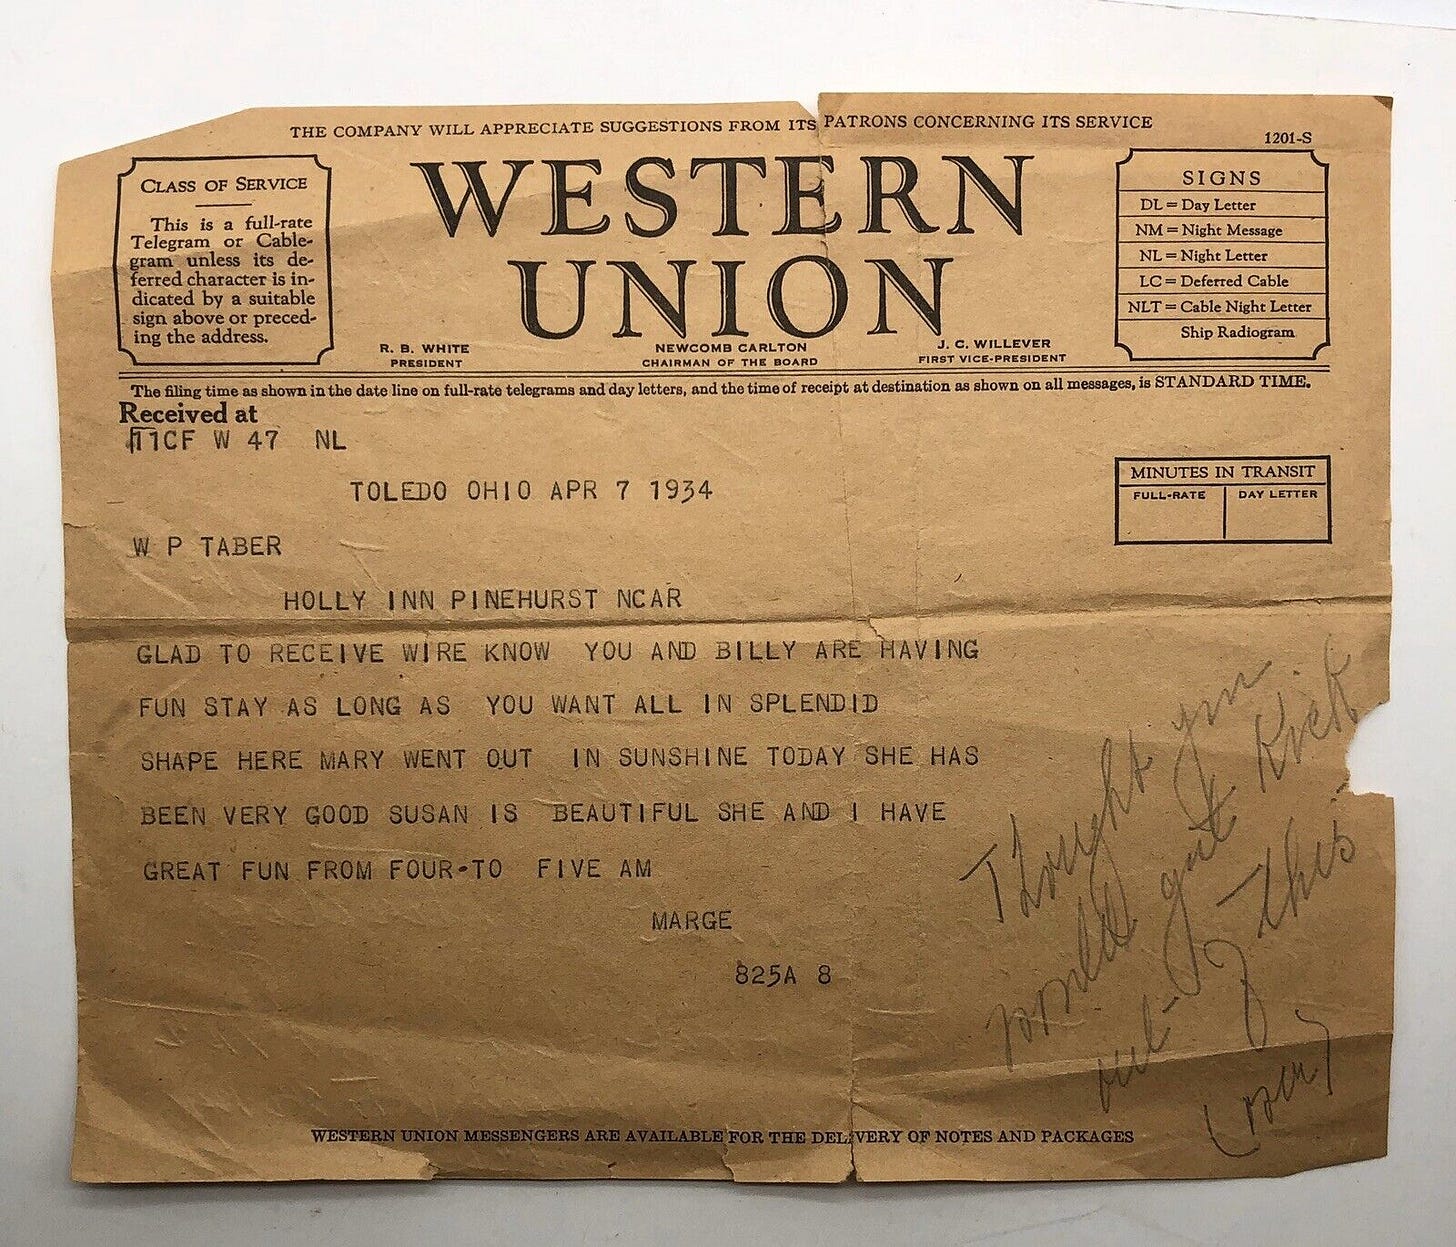 THE COMPANY WILL APPRECIATE SUGGESTIONS FROM ITS PATRONS CONCERNING ITS SERVICE
1201-S
CLASS OF SERVICE
This is a full-rate
Telegram or Cable-
gram unless its de-
ferred character is in-
dicated by a suitable
sign above or preced-
ing the address.
WESTERN
UNION
R. B. WHITE
PRESIDENT
NEWCOMB CARLTON
CHAIRMAN OF THE BOARD
J. C. WILLEVER
FIRST VICE-PRESIDENT
SIGNS
DL = Day Letter
NM = Night Message
NL = Night Letter
LC = Deferred Cable
NLT = Cable Night Letter
Ship Radiogram
The filing time as shown in the date line on full-rate telegrams and day letters, and the time of receipt at destination as shown on all messages, is STANDARD TIME.
Received at
11CF W 47 NL
MINUTES IN TRANSIT
FULL-RATE DAY LETTER
TOLEDO OHIO APR 7 1934
W P TABER
HOLLY INN PINEHURST NCAR
GLAD TO RECEIVE WIRE KNOW YOU AND BILLY ARE HAVING
FUN STAY AS LONG AS YOU WANT ALL IN SPLENDID
SHAPE HERE MARY WENT OUT IN SUNSHINE TODAY SHE HAS
BEEN VERY GOOD SUSAN IS BEAUTIFUL SHE AND I HAVE
GREAT FUN FROM FOUR-TO FIVE AM
MARGE
825A 8
Thought you
would get Kick
out of this
(over)
WESTERN UNION MESSENGERS ARE AVAILABLE FOR THE DELIVERY OF NOTES AND PACKAGES